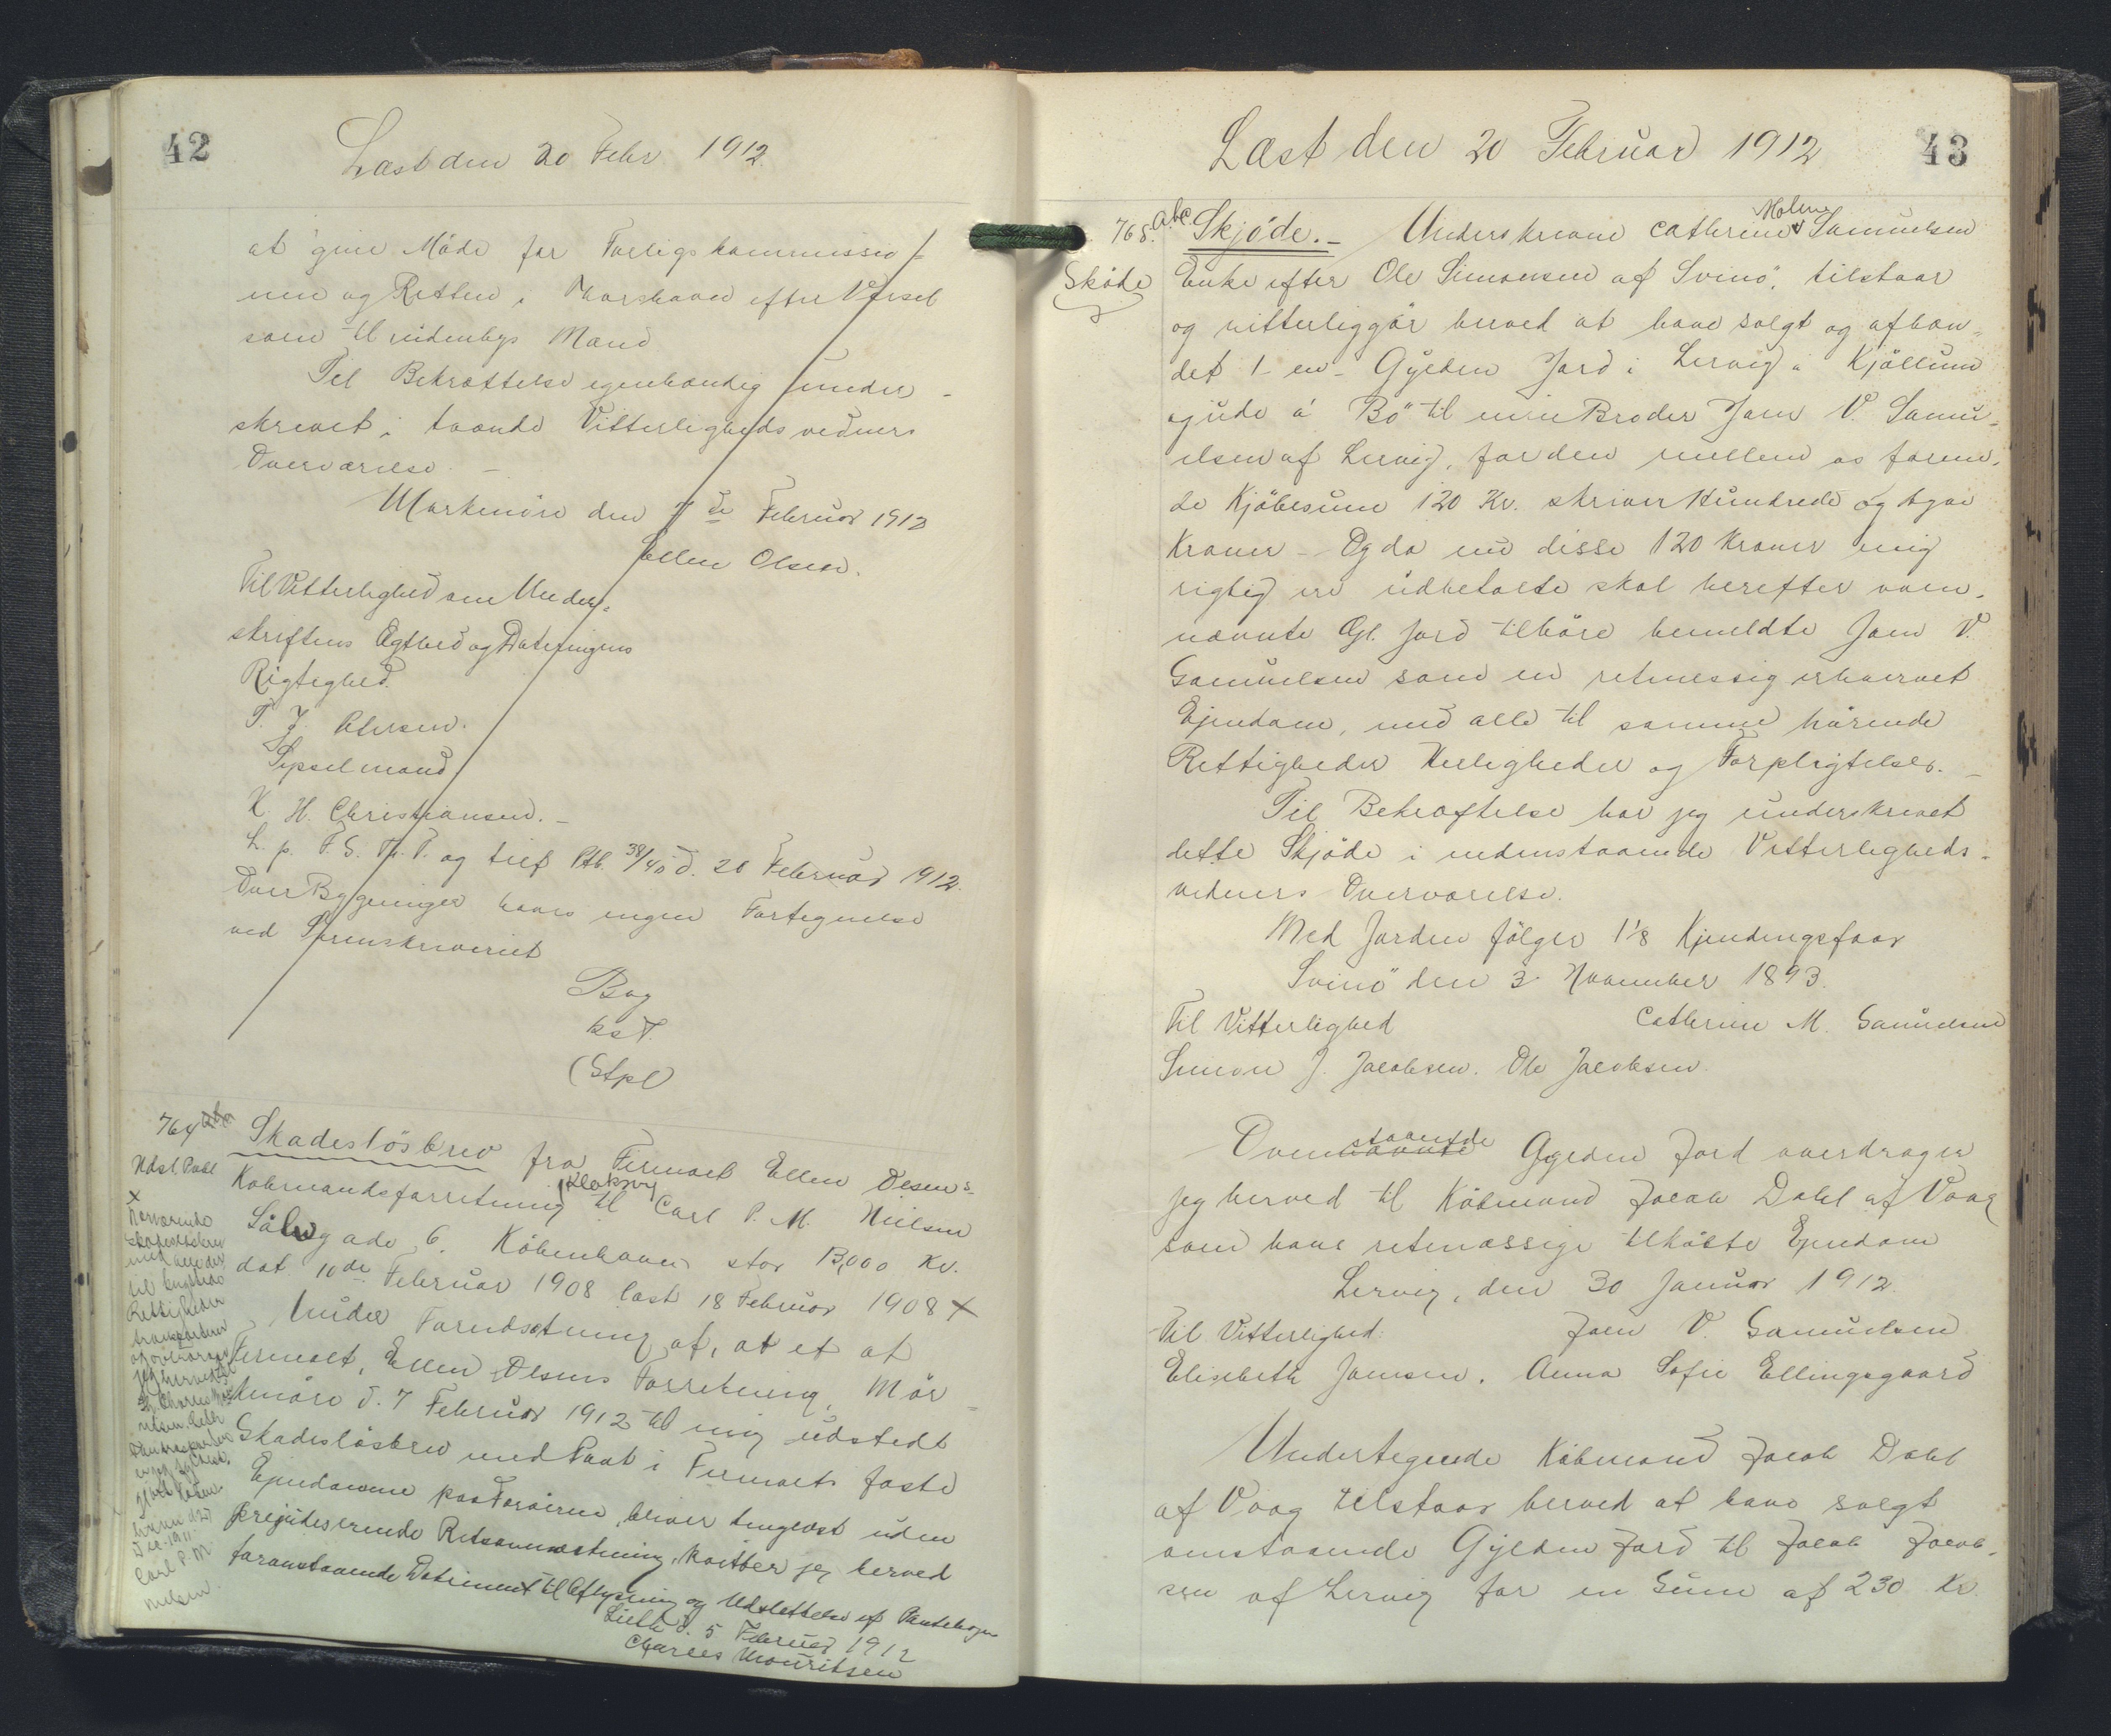 42
Læst den 20 Febr 1912.
at give Möde for Forligskommissio=
nen og Retten i Thorshavn efter Varsel
som til indenbys Mand
Til Bekræftelse egenhændig under-
skrevet i tvende Vitterlighedsvidners
Overværelse. -
Markenöre den 7de Februar 1912
Ellen Olsen.
Til Vitterlighed om Under=
skriftens Ægthed og Dateringens
Rigtighed.
P. J. Petersen.
Sysselmand
K. H. Christiansen. -
L. p. F. S. Th. T. og tilf Ptb. 38/40 d. 20 Februar 1912.
Over Bygninger haves ingen Fortegnelse
ved Sorenskriveriet
Bag
kst.
(Stpl)
764
Skadeslösbrev fra Firmaet Ellen Olsens
Udsl. Pabl
Købmandsforretning Klaksvig til Carl P. M. Nielsen
Sölvgade 6. København stor 13,000 Kr.
dat. 10de Februar 1908 læst 18 Februar 1908 X
Under Forudsætning af, at et af
Firmaet, Ellen Olsens Forretning, Mär=
kenöre d. 7 Februar 1912 til mig udstedt
Skadeslösbrev med Pant i Firmaets faste
Ejendomme paa Færöerne, bliver tinglæst uden
præjudiserende Retsanmærkning, kvitter jeg herved
foranstaaende Dokument til Aflysning og Udslettelse af Pantebogen
Lilth d. 5 Februar 1912
Charles Mouritsen
X
Nærværende
Skadeslösbrev
med
til
Rettigheder
transporterer
og overdrager
jeg herved til
Hr. Charles
Carl P. M.
Nielsen.
Læst den 20 Februar 1912
43
768. a.b.c. Skjöde. - Underskrevne Catherine Malene Samuelsen
Sköde Enke efter Ole Simonsen af Svinö, tilstaar
og vitterliggör herved at have solgt og afhæn=
det 1 - en - Gylden Jord i Lervig i Kjöllum
ejude á Bö til min Broder Joen V. Samu=
elsen af Lervig, for den mellem os forene=
de Kjöbesum 120 Kr. skriver Hundrede og tyve
Kroner - Og da nu disse 120 Kroner mig
rigtig er udbetalte skal herefter oven=
nævnte Gl. Jord tilhöre bemeldte Joen V.
Samuelsen som en retmessig erhvervet
Ejendom, med alle til samme hörende
Rettigheder Herligheder og Forpligtelser. -
Til Bekræftelse har jeg underskrevet
dette Skjöde i nedenstaaende Vitterligheds=
vidners Overværelse.
Med Jorden fölger 1 1/8 Kjendingsfaar
Svinö den 3 November 1893.
Til Vitterlighed Catherine M. Samuelsen
Simon J. Jacobsen. Ole Jacobsen.
Ovennævnte staaende Gylden Jord overdrager
jeg herved til Købmand Jacob Dahl af Vaag
som hans retmæssige tilkøbte Ejendom
Lervig, den 30 Januar 1912.
Til Vitterlighed: Joen V. Samuelsen
Elisebeth Joensen. Anna Sofie Ellingsgaard
Undertegnede Købmand Jacob Dahl
af Vaag tilstaar herved at have solgt
omstaaende Gylden Jord til Jacob Jacob=
sen af Lervig for en Sum af 230 Kr.